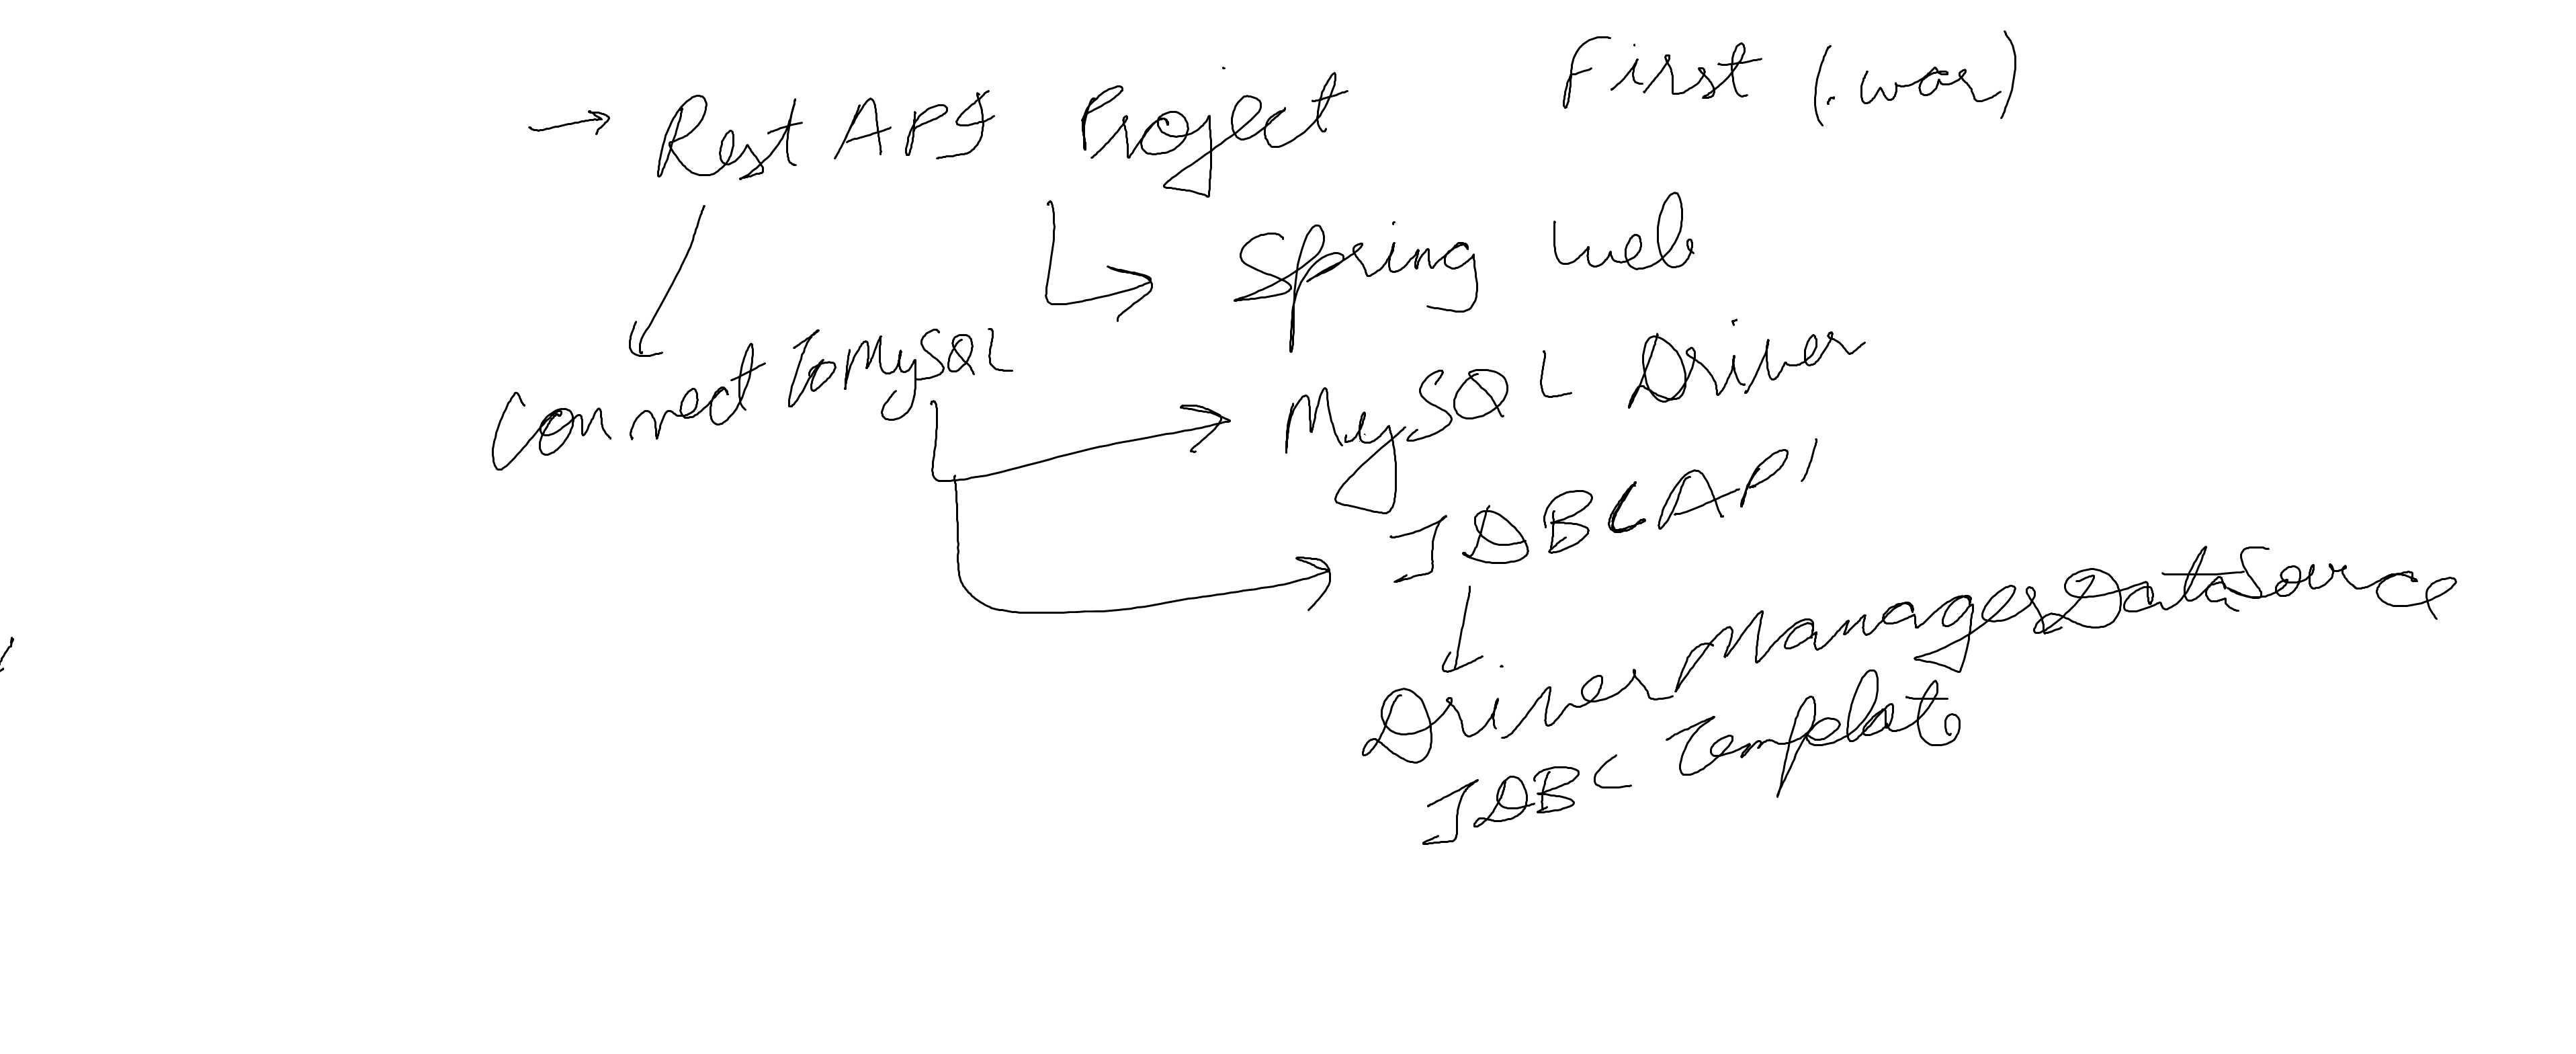 → Rest API Project First (.war)
Spring Web
Connect To MySQL
MySQL Driver
JDBC API
DriverManagerDataSource
JDBC Template